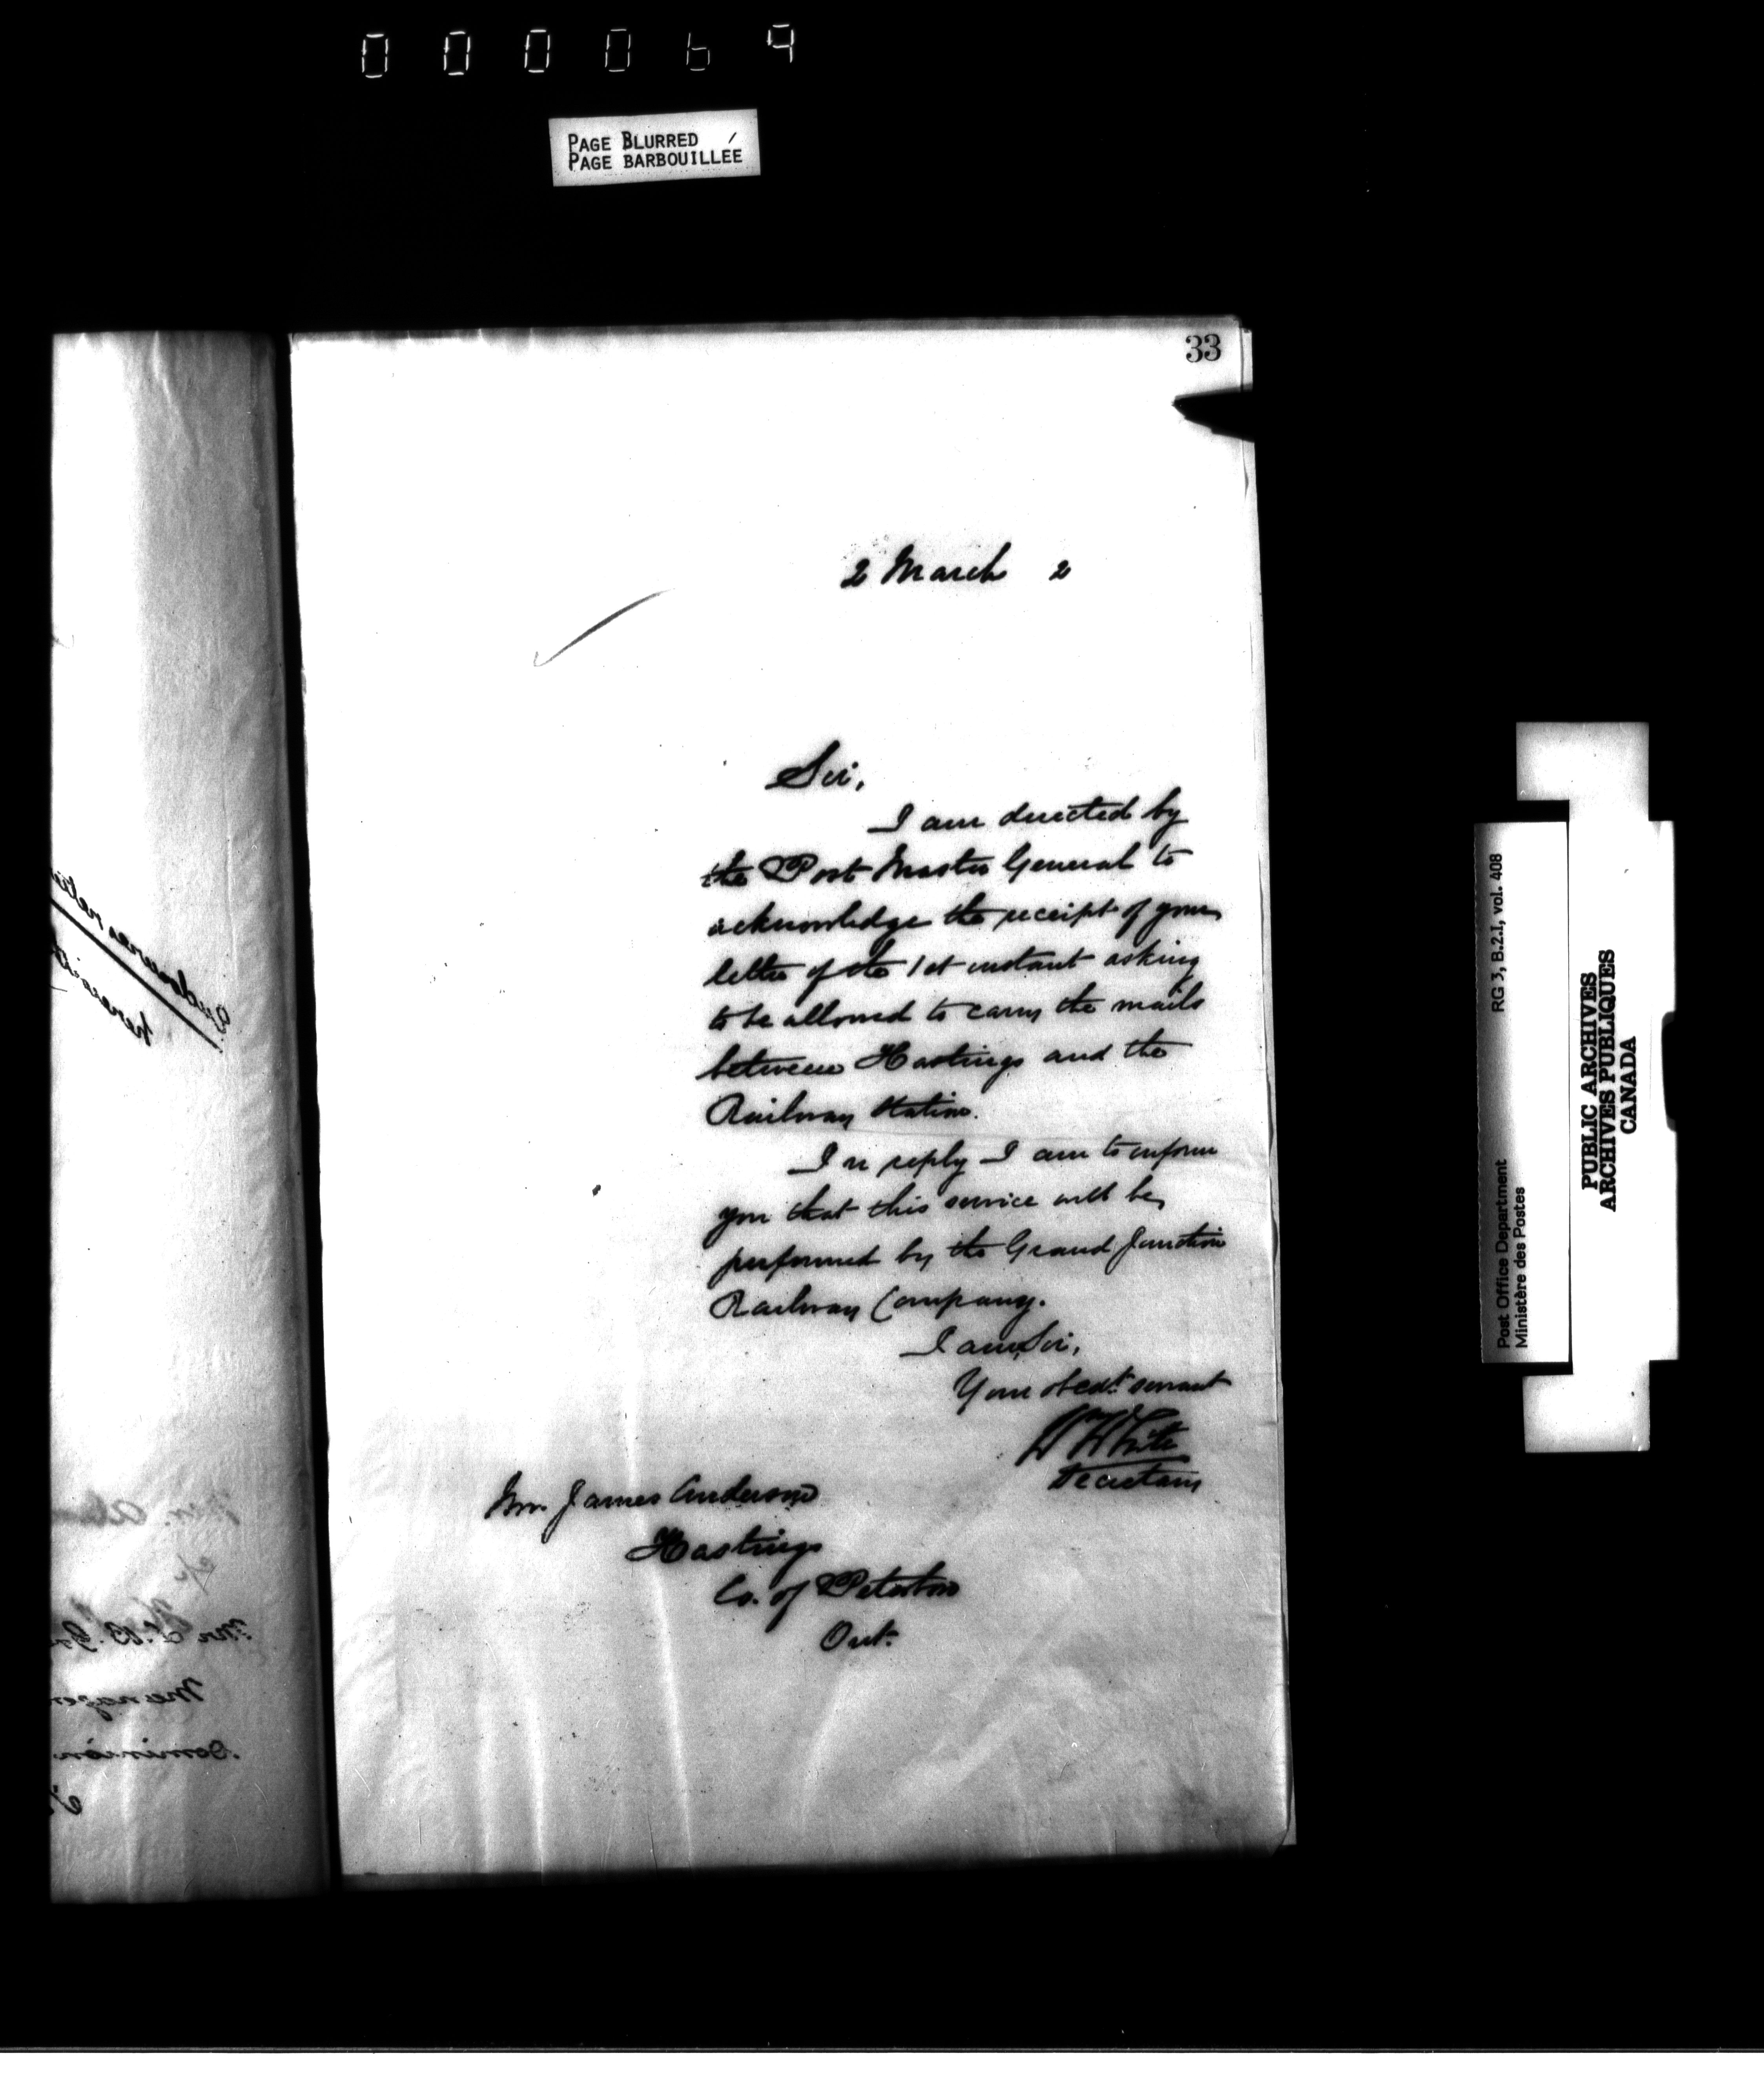 000069
PAGE BLURRED
PAGE BARBOUILLÉE
33
2 March 2
Sir,
I am directed by
the Post Master General to
acknowledge the receipt of your
letter of the 1st instant asking
to be allowed to carry the mails
between Hastings and the
Railway Station.
In reply I am to inform
you that this service will be
performed by the Grand Junction
Railway Company.
I am, Sir,
Your obedt. servant
Wm White
Secretary
Mr. James Anderson
Hastings
Co. of Peterboro
Ont.
Mr
Manager
Dominion
RG 3, B.2.I, vol. 408
Post Office Department
Ministère des Postes
PUBLIC ARCHIVES
ARCHIVES PUBLIQUES
CANADA